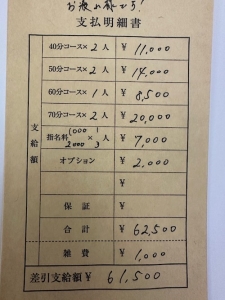 お疲れ様です!
支払明細書
支給額
40分コース×2人 ¥11,000
50分コース×2人 ¥14,000
60分コース×1人 ¥8,500
70分コース×2人 ¥20,000
指名料 1000 2000 × 3 人 ¥7,000
オプション ¥2,000
¥
保証 ¥
合計 ¥62,500
雑費 ¥1,000
差引支給額¥ 61,500